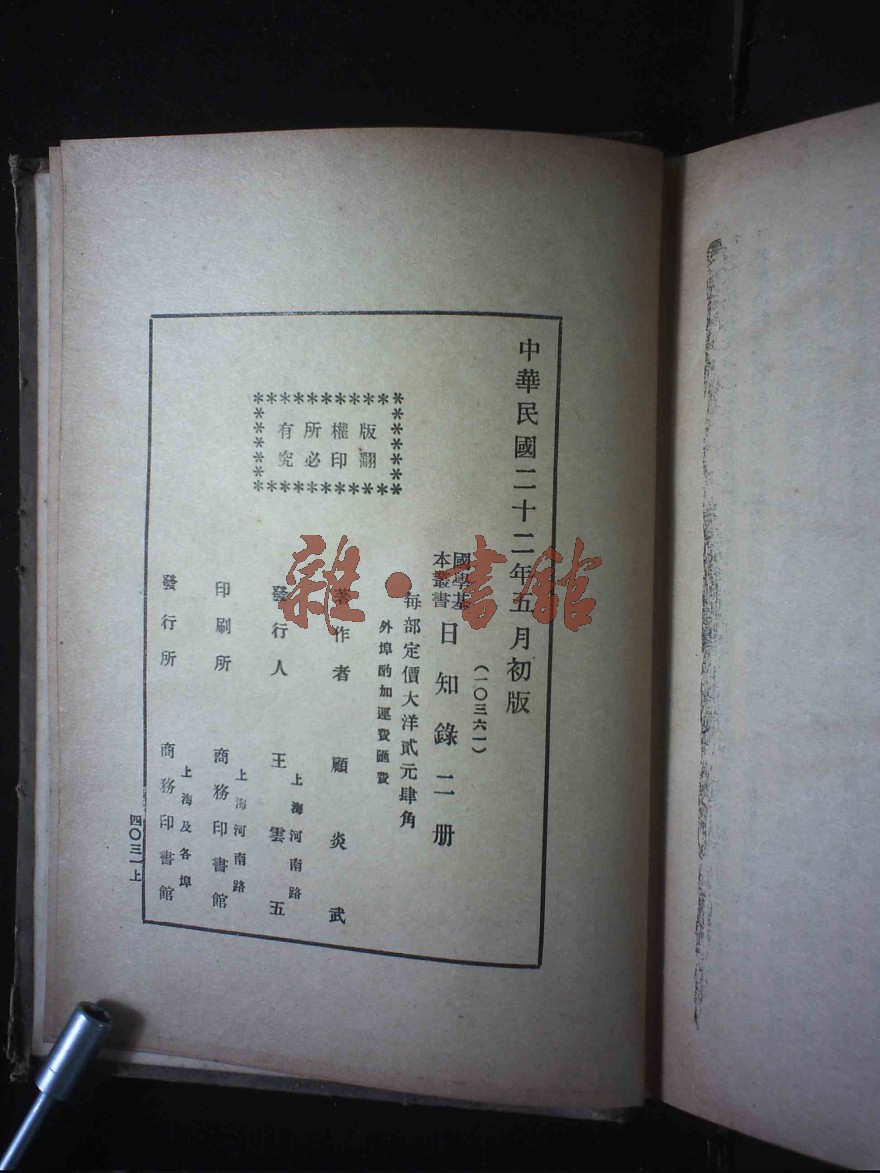 中華民國二十二年五月初版
(一〇三六一)
國學基
本叢書
日知錄二册
每部定價大洋貳元肆角
外埠酌加運費匯費
版權所有
翻印必究
著作者 顧炎武
發行人 王雲五
上海河南路
印刷所 商務印書館
上海河南路
發行所 商務印書館
上海及各埠
四〇三一上
雜·書館